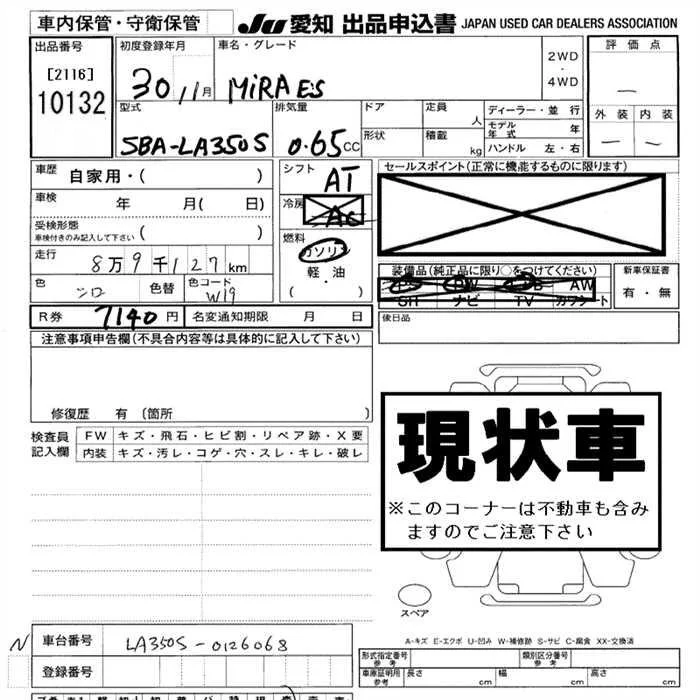 車内保管・守衛保管
JU 愛知 出品申込書 JAPAN USED CAR DEALERS ASSOCIATION
出品番号 初度登録年月 車名・グレード 評価点
[2116] 30 11月 MiRA ES 2WD・4WD ー
10132
型式 排気量 ドア 定員 人 ディーラー・並行 外装 内装
SBA-LA350S 0.65cc 形状 積載 kg モデル年式 年 ー ー
ハンドル 左・右
車歴 自家用・( ) シフト AT セールスポイント(正常に機能するものに限ります)
車検 年 月( 日) 冷房 AC
受検形態 ( )
車検付きのみ記入して下さい
燃料 ガソリン・軽油・( )
走行 8万9千127km
装備品(純正品に限り○をつけてください) 新車保証書
PS PW AB AW 有・無
SR ナビ TV カワシート
色 シロ 色替 色コード W19
R券 7140円 名変通知期限 月 日 後日品
注意事項申告欄(不具合内容等は具体的に記入して下さい)
修復歴 有(箇所 )
現状車
※このコーナーは不動車も含み
ますのでご注意下さい
検査員記入欄 FW キズ・飛石・ヒビ割・リペア跡・X要
内装 キズ・汚レ・コゲ・穴・スレ・キレ・破レ
スペア
A-キズ E-エクボ U-凹み W-補修跡 S-サビ C-腐食 XX-交換済
N 車台番号 LA350S-0126068
登録番号
形式指定番号 参考 類別区分番号 参考
車庫証明用 参考 長さ cm 幅 cm 高さ cm